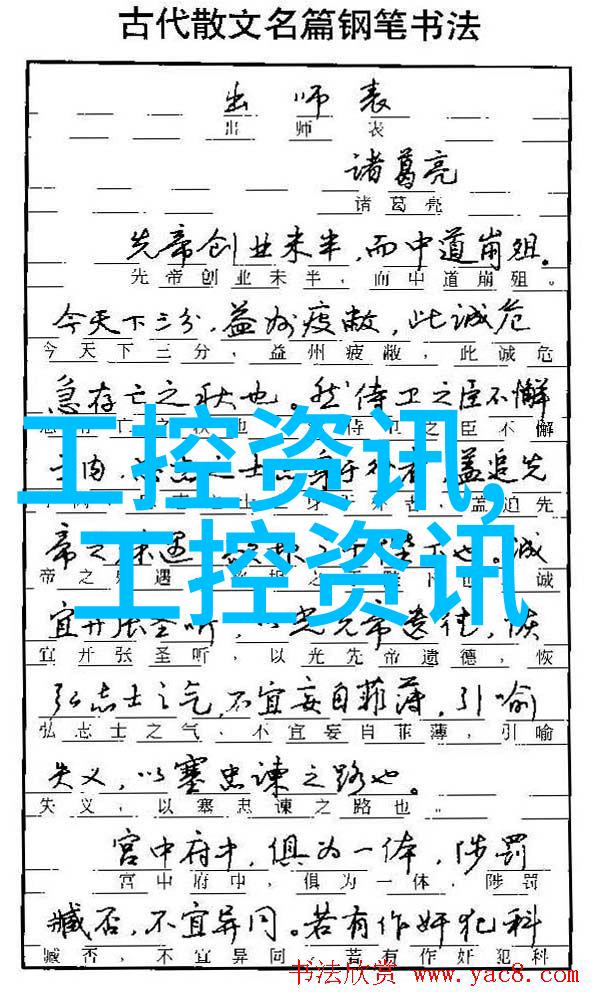 古代散文名篇钢笔书法
出师表
出师表
诸葛亮
诸葛亮
先帝创业未半，而中道崩殂。
先帝创业未半，而中道崩殂。
今天下三分，益州疲敝，此诚危
今天下三分，益州疲敝，此诚危
急存亡之秋也。然侍卫之臣不懈
亡之秋也 侍卫之臣不懈
工控资讯,
于内，忠志之士 身于外者，盖追先
盖追先
帝之 遇 也。诚
帝之 遇 也 诚
工控资讯
宜开张圣听，以光先帝遗德，恢
宜开张圣听，以光先帝遗德，恢
弘志士之气，不宜妄自菲薄，引喻
弘志士之气，不宜妄自菲薄，引喻
失义，以塞忠谏之路也。
失义，以塞忠谏之路也。
宫中府中，俱为一体，陟罚
宫中府中，俱为一体，陟罚
臧否，不宜异同。若有作奸犯科
臧否，不宜异同。若有作奸犯科
书法欣赏 www.yac8.com